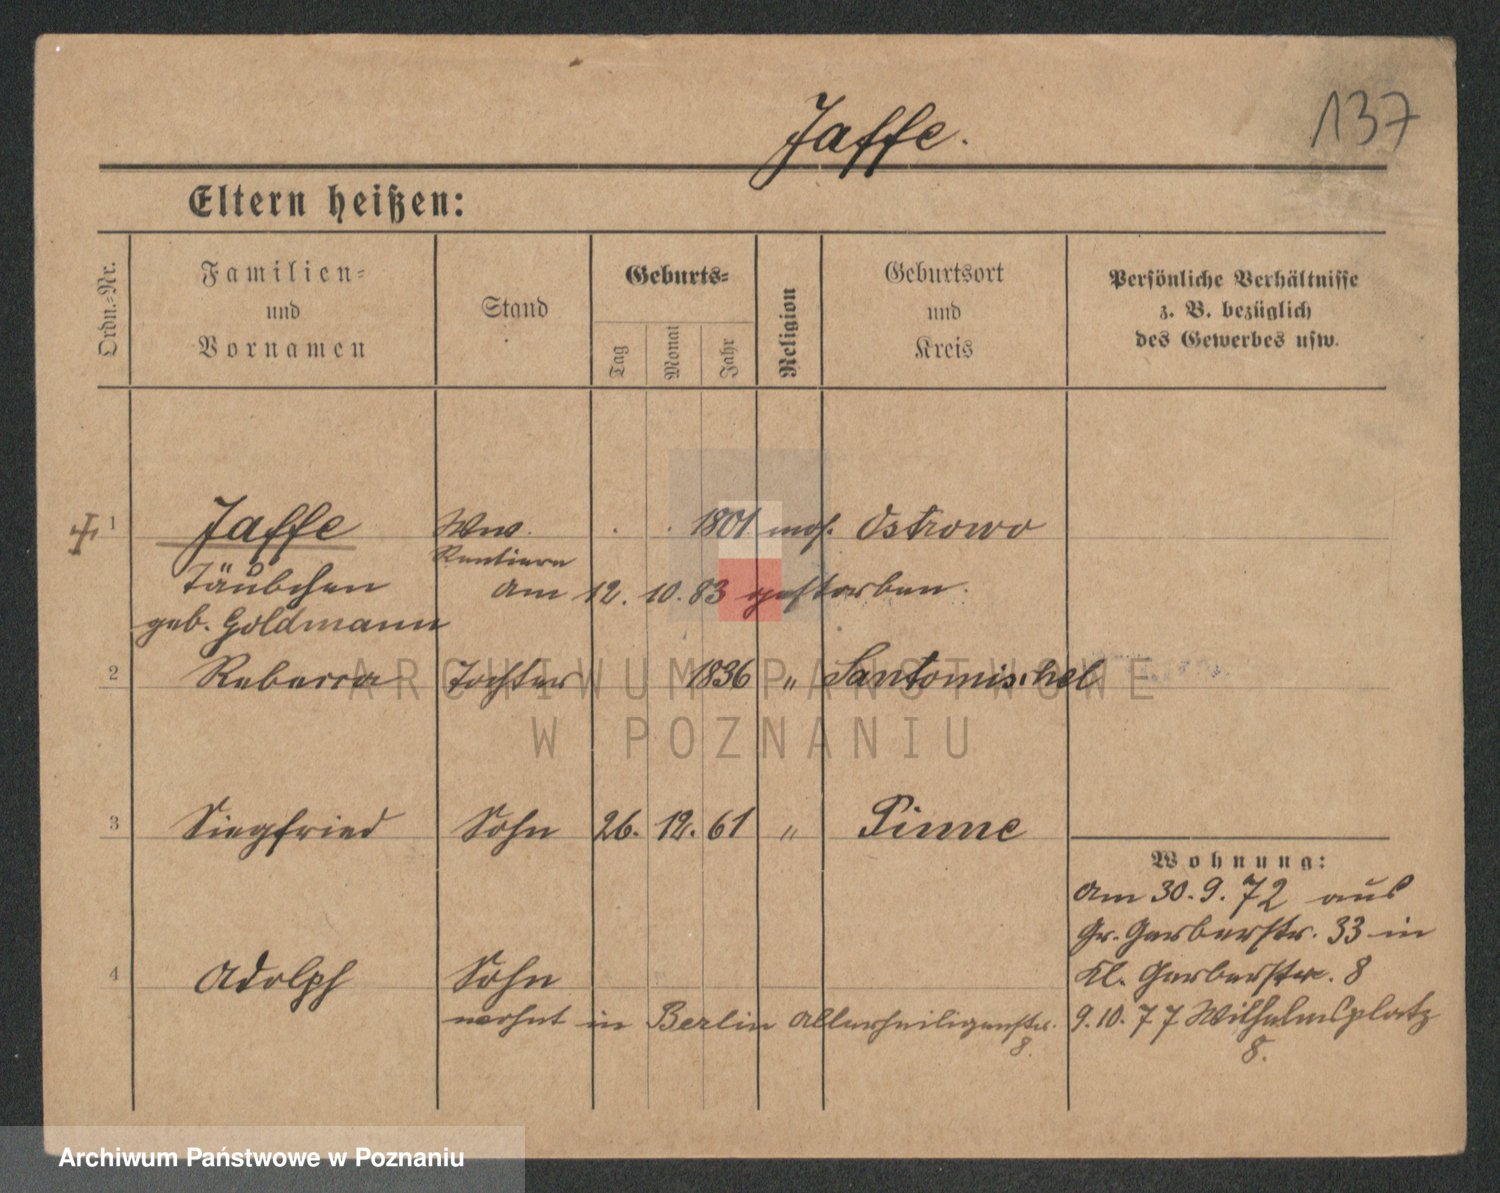 Jaffe.
137
Eltern heißen:
Ordn.-Nr.
Familien-
und
Vornamen
Stand
Geburts-
Tag
Monat
Jahr
Religion
Geburtsort
und
Kreis
Persönliche Verhältnisse
z. B. bezüglich
des Gewerbes usw.
1 Jaffe Ww. . . 1801 mos. Ostrowo
Rentiere
Täubchen am 12. 10. 83 gestorben.
geb. Goldmann
2 Rebecca Tochter 1836 " Santomischel
3 Siegfried Sohn 26. 12. 61 " Pinne
Wohnung:
am 30. 9. 72 aus
Gr. Gerberstr. 33 in
4 Adolph Sohn
Kl. Gerberstr. 8
wohnt in Berlin Allerheiligenstr.
8.
9. 10. 77 Wilhelmsplatz
8.
ARCHIWUM PAŃSTWOWE
W POZNANIU
Archiwum Państwowe w Poznaniu